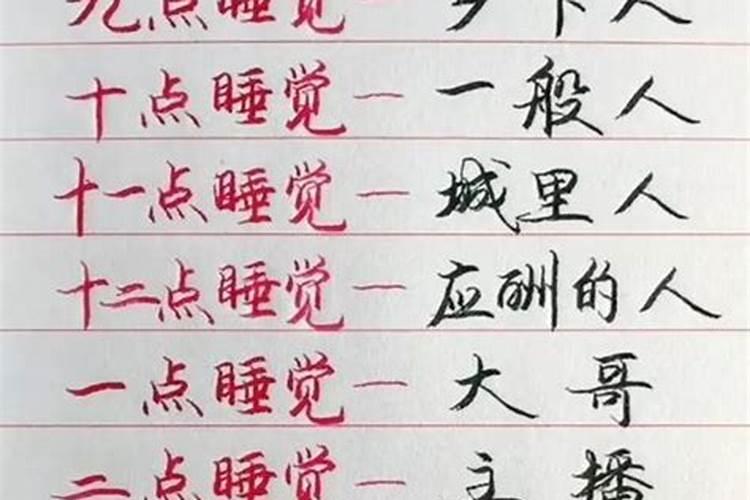 九点睡觉一乡下人
十点睡觉一一般人
十一点睡觉一城里人
十二点睡觉一应酬的人
一点睡觉一大哥
二点睡觉一主播